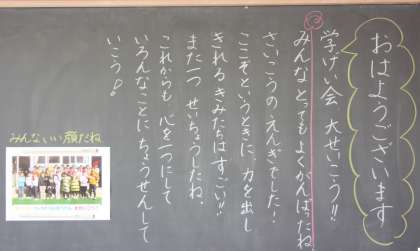 おはようございます
学けい会 大せいこう!!
みんな とってもよくがんばったね
さいこうの えんぎでした!
ここぞというときに、力を出し
きれる きみたちは すごい!!
また一つ せいちょうしたね。
これからも 心を一つにして
いろんなことに ちょうせんして
いこう!
みんないい顔だね